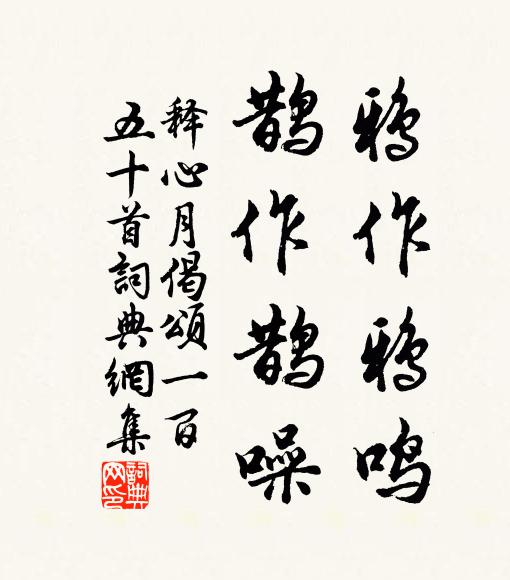 鸦作鸦鸣
鹊作鹊噪
释心月偈颂一百
五十首詞典網集
詞典
网印